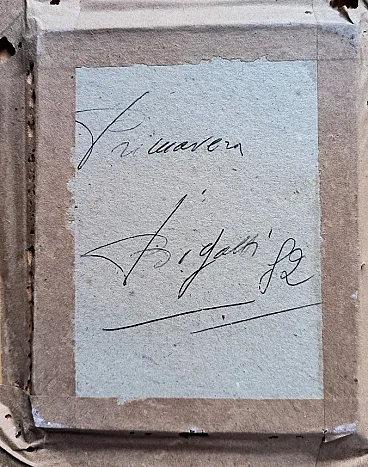 Primavera
Bigatti 82